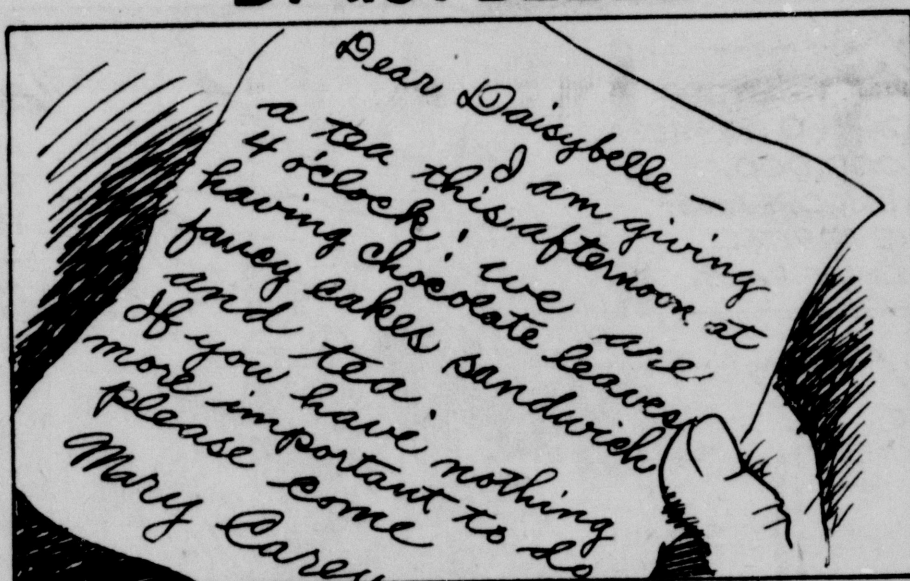 Dear Daisybelle —
I am giving
a tea this afternoon at
4 o'clock. We are
having chocolate leaves
fancy cakes sandwich
and tea.
If you have nothing
more important to do
please come
Mary Carey